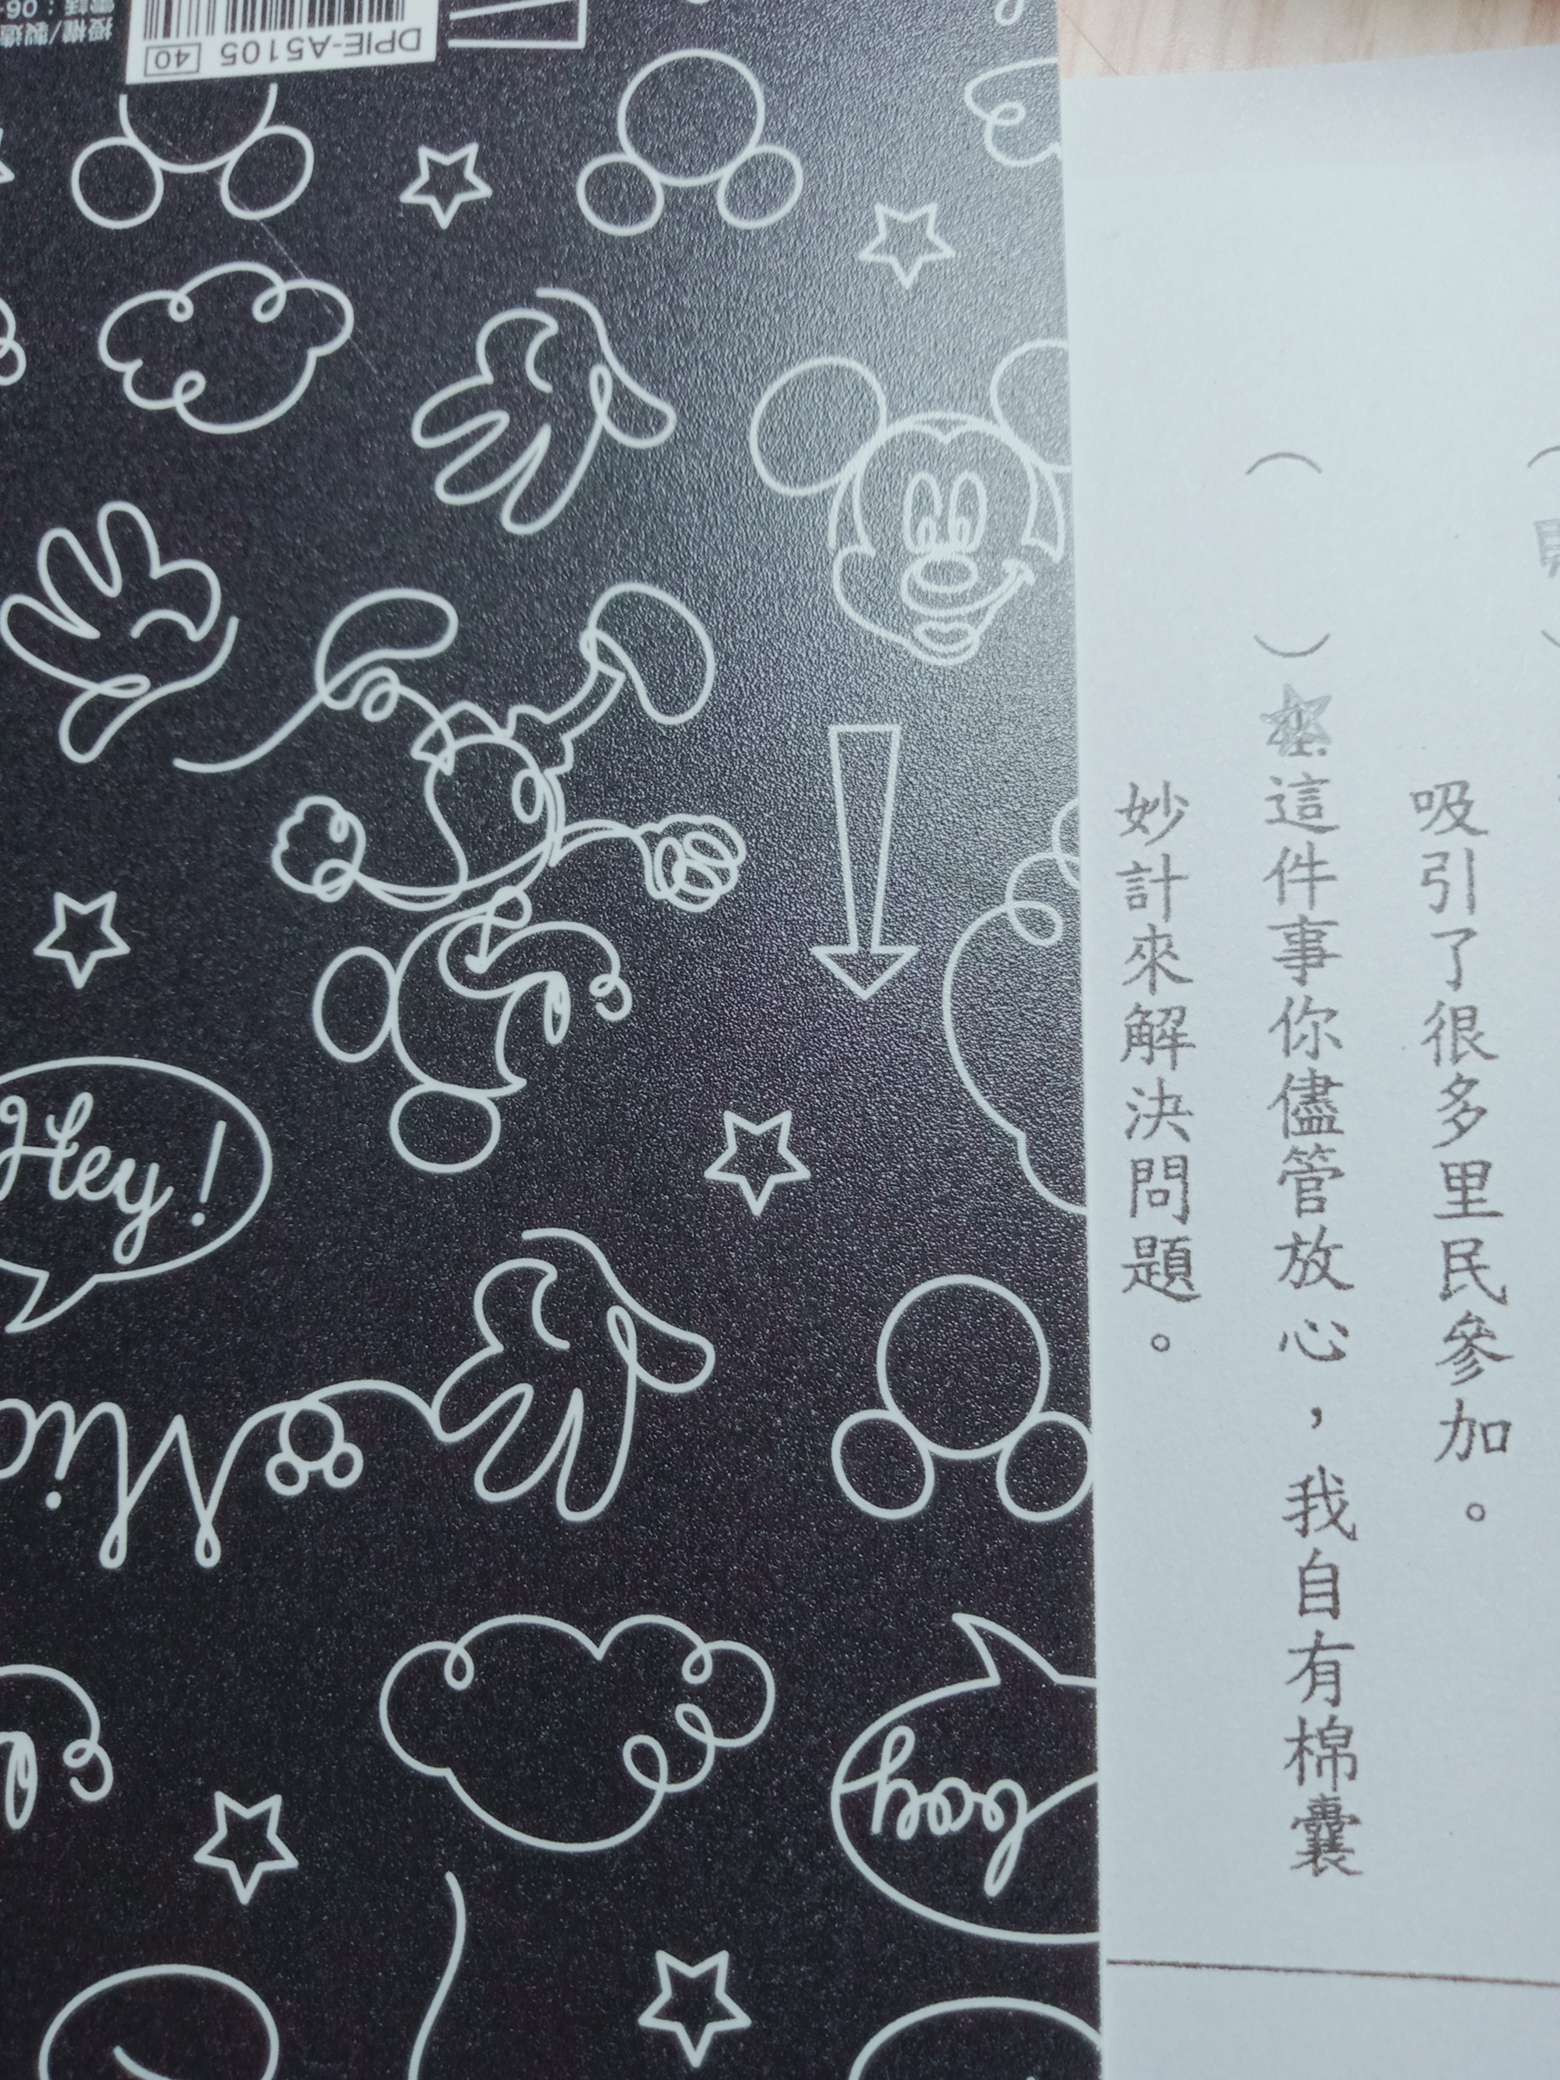 吸引了很多里民參加。
這件事你儘管放心，我自有棉囊
妙計來解決問題。
DPIE-A5105
40
授權/製造
Hey!
Hey